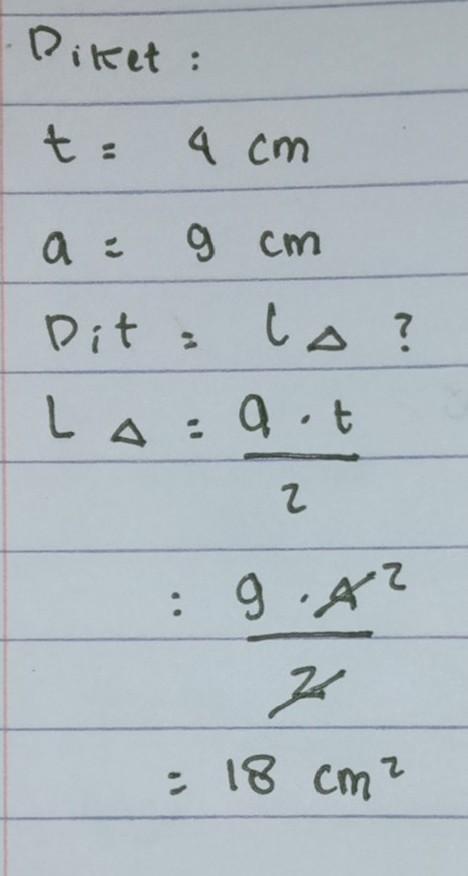 Diket :
t = 4 cm
a = 9 cm
Dit = L △ ?
L △ = a . t
2
: 9 . 4 2
2
= 18 cm²